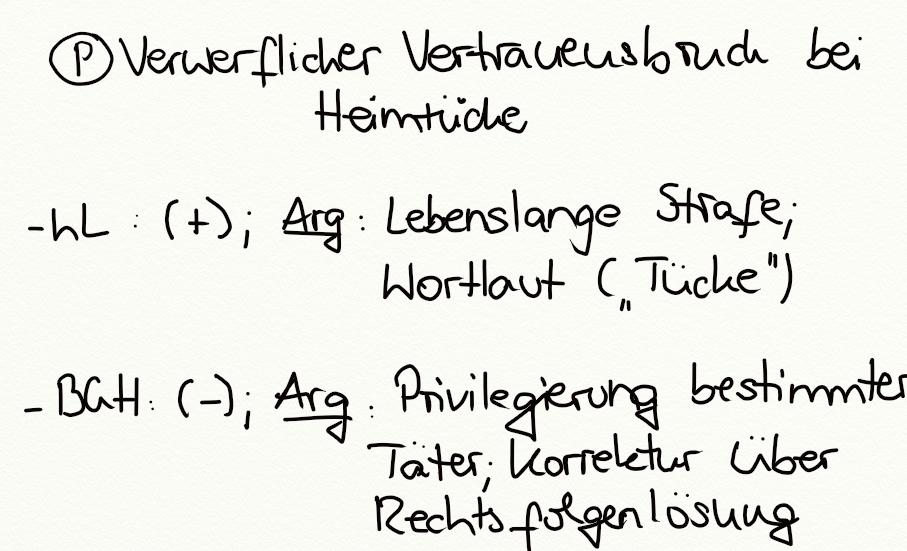 Ⓟ Verwerflicher Vertrauensbruch bei
Heimtücke
- hL : (+); Arg : Lebenslange Strafe;
Wortlaut („Tücke")
- BGH : (-); Arg : Privilegierung bestimmter
Täter; Korrektur über
Rechtsfolgenlösung